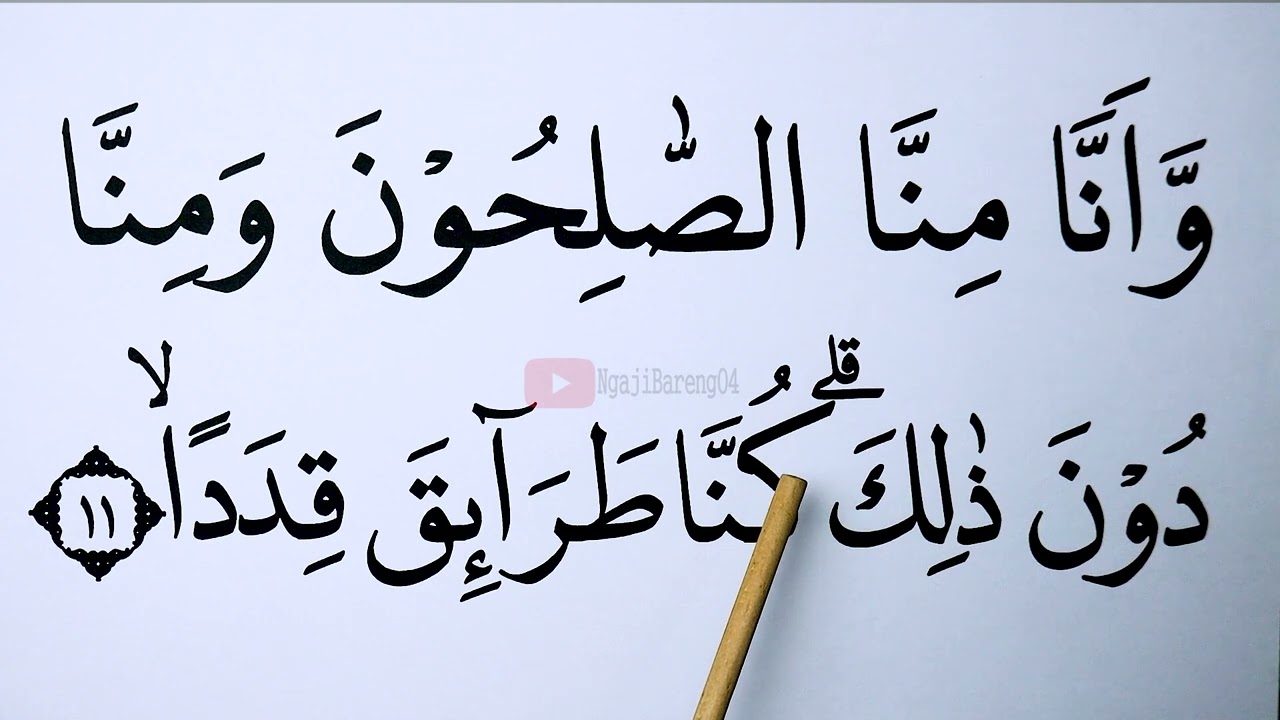 وَّاَنَّا مِنَّا الصّٰلِحُوْنَ وَمِنَّا
دُوْنَ ذٰلِكَۗ كُنَّا طَرَاۤىِٕقَ قِدَدًاۙ ١١
NgajiBareng04